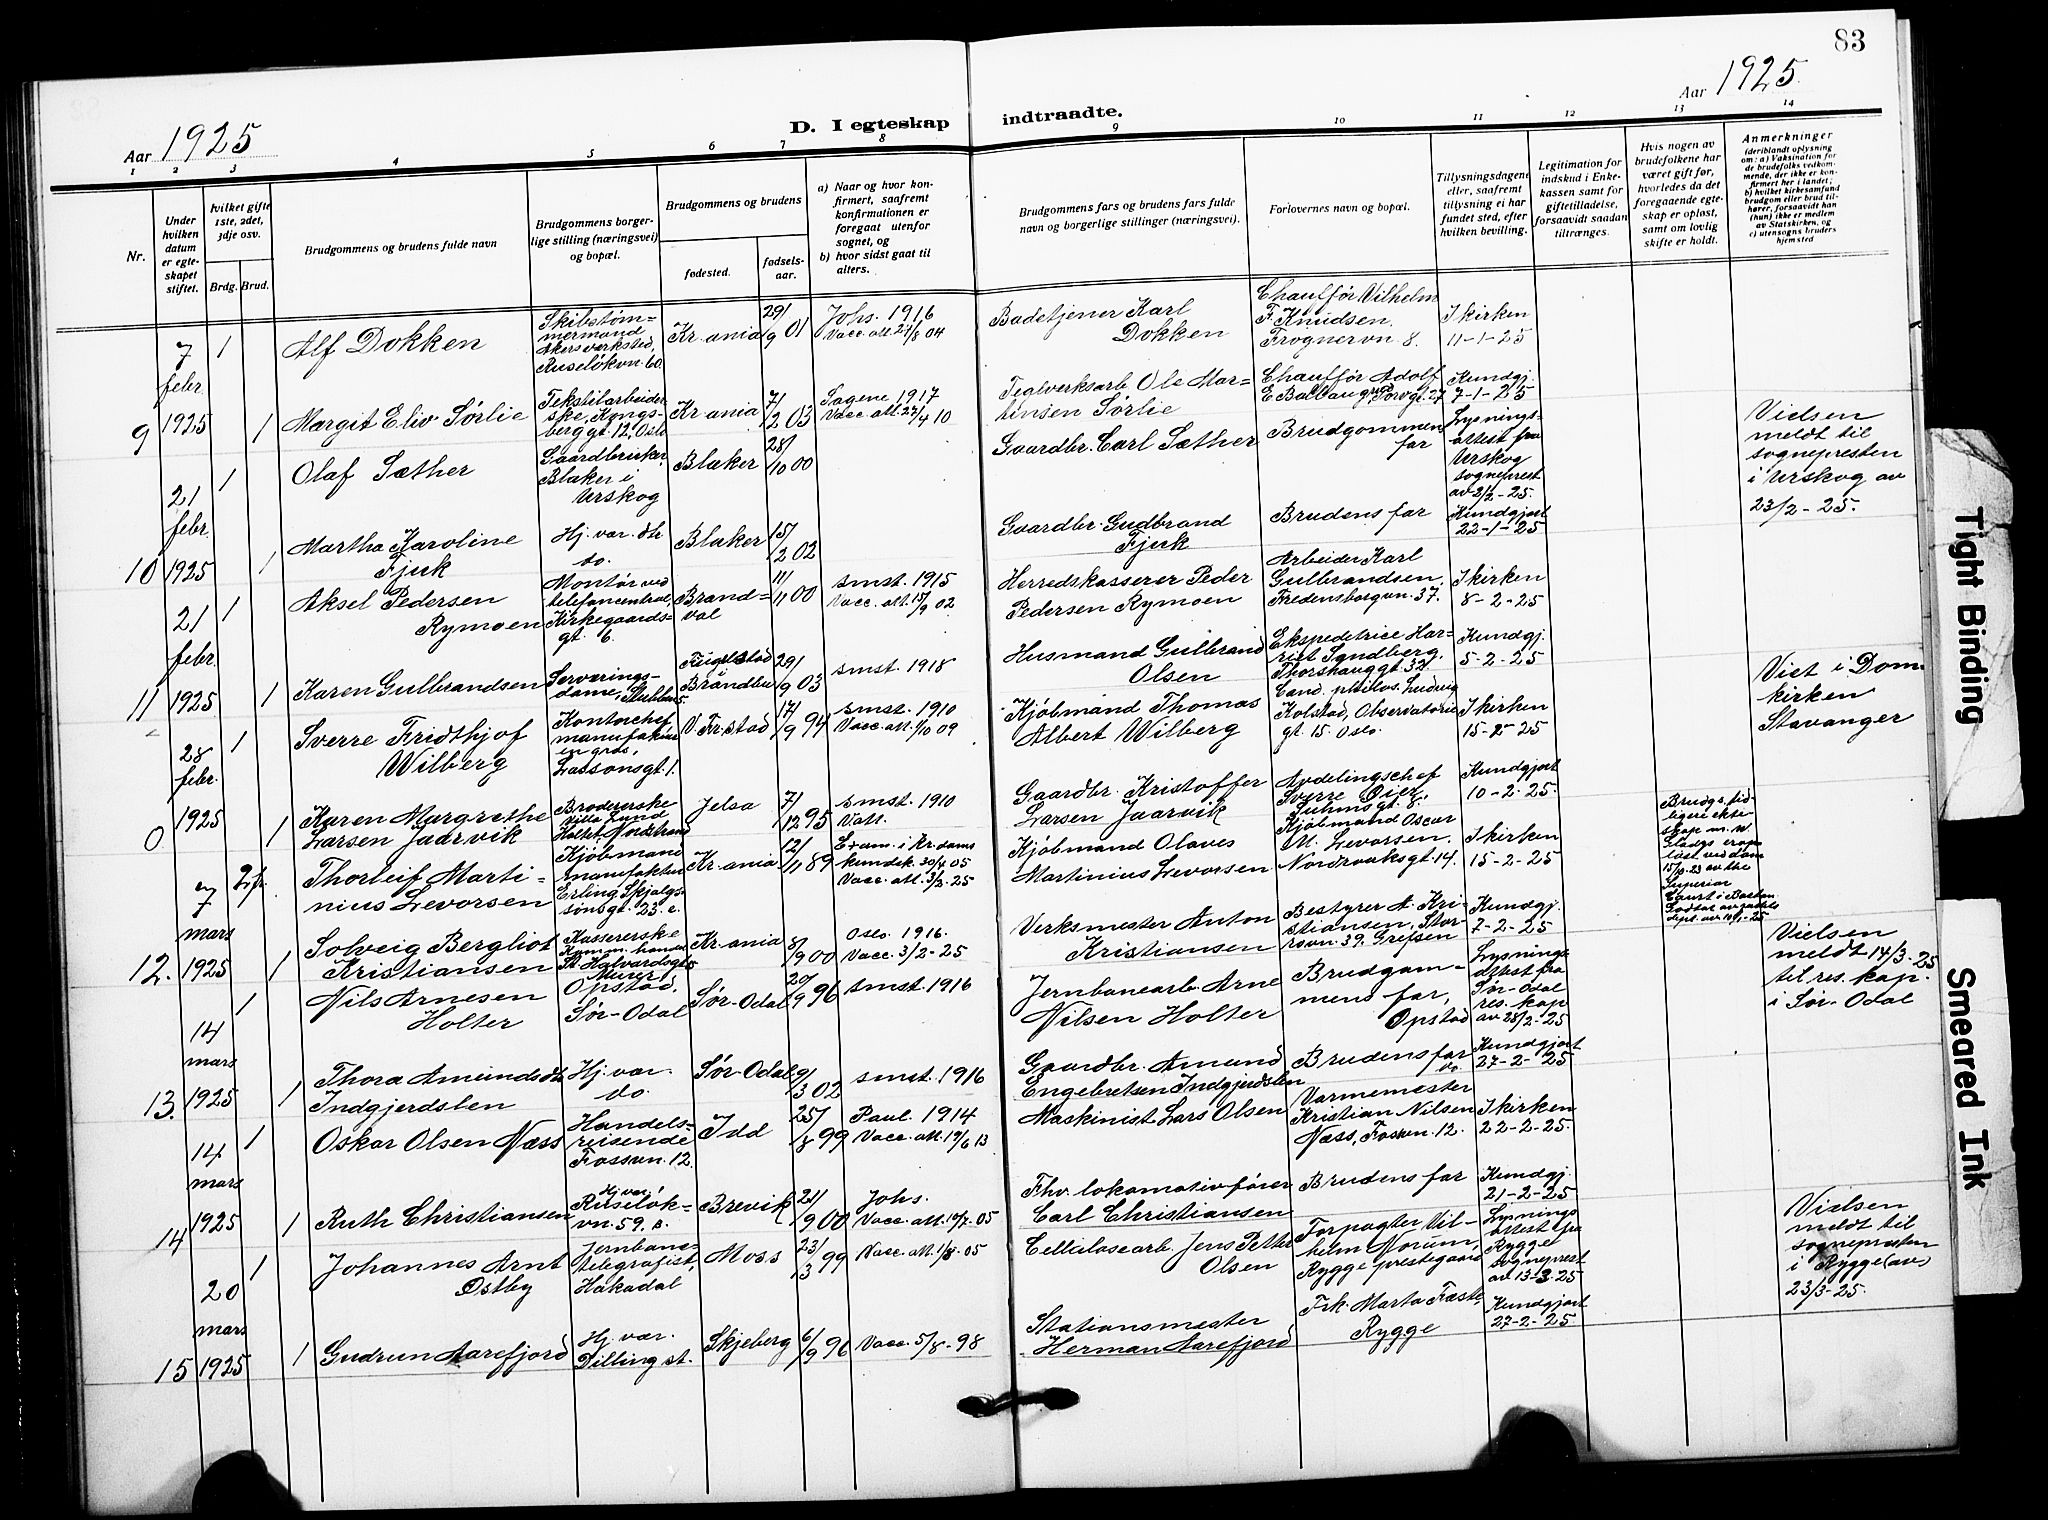 83
Aar 1925
D. I egteskap indtraadte.
Aar 1925.
1 2 3 4 5 6 7 8 9 10 11 12 13 14
Nr.
Under hvilken datum er egte-skapet stiftet.
Hvilket gifte 1ste, 2det, 3dje osv.
Brdg. Brud.
Brudgommens og brudens fulde navn
Brudgommens borger-lige stilling (næringsvei) og bopæl.
Brudgommens og brudens
fødested.
fødsels-aar.
a) Naar og hvor kon-firmert, saafremt konfirmationen er foregaat utenfor sognet, og
b) hvor sidst gaat til alters.
Brudgommens fars og brudens fars fulde navn og borgerlige stillinger (næringsvei).
Forlovernes navn og bopæl.
Tillysningsdagene eller, saafremt tillysning ei har fundet sted, efter hvilken bevilling.
Legitimation for indskud i Enke-kassen samt for giftetilladelse, forsaavidt saadan tiltrænges.
Hvis nogen av brudefolkene har været gift før, hvorledes da det foregaaende egte-skap er opløst, samt om lovlig skifte er holdt.
Anmerkninger
(deriblandt oplysning om: a) Vaksination for de brudefolks vedkom-mende, der ikke er kon-firmert her i landet; b) hvilket kirkesamfund brudgom eller brud til-hører, forsaavidt han (hun) ikke er medlem av Statskirken, og c) utensogns bruders hjemsted
9
7 febr. 1925
1
Alf Dokken
Skibstøm-mermand Akersverksted, Ruseløkvn. 60.
Kr.ania
29/9 01
Johs. 1916
Vacc. att. 27/8 04
Badetjener Karl Dokken
Chauffør Vilhelm F. Knudsen, Frognervn. 8.
I kirken 11-1-25
1
Margit Eliv Sørlie
Tekstilarbeider-ske, Kongs-berg gt. 12, Oslo
Kr.ania
7/2 03
Sagene 1917
Vacc. att. 27/4 10
Teglverksarb. Ole Mar-tinsen Sørlie
Chauffør Adolf
Kundgj. 7-1-25
10
21 febr. 1925
1
Olaf Sæther
Gaardbruker, Blaker i Urskog
Blaker
28/10 00
Gaardbr. Carl Sæther
Brudgommens far
Lysnings-attest fra Urskog sogneprest av 2/2-25.
Vielsen meldt til sognepresten i Urskog av 23/2-25.
1
Martha Karoline Fjuk
Hj. vær. dtr do.
Blaker
15/2 02
Gaardbr. Gudbrand Fjuk
Brudens far
Kundgjort 22-1-25
11
21 febr. 1925
1
Aksel Pedersen Rymoen
Montør ved telefoncentral, Kirkegaards-gt. 6.
Brand-val
11/11 00
smst. 1915
Vacc. att. 15/9 02
Herredskasserer Peder Pedersen Rymoen
Arbeider Karl Gulbrandsen, Fredensborgvn. 37.
I kirken 8-2-25
1
Karen Gulbrandsen
Serverings-dame,
Brandbu
29/9 03
smst. 1918
Husmand Gulbrand Olsen
Ekspeditrice Har-riet Sandberg, Thorshauggt. 32.
Kundgj. 5-2-25
0
28 febr. 1925
1
Sverre Fridthjof Wilberg
Kontorchef manufaktur en gros, Lassonsgt. 1.
V. Fr.stad
17/9 94
smst. 1910
Vacc. att. 1/10 09
Kjøbmand Thomas Albert Wilberg
Cand. philos. Ludvig Kolstad, Observatorie gt. 15. Oslo.
I kirken 15-2-25
Viet i Dom-kirken Stavanger
1
Karen Margrethe Larsen Jaarvik
Brodererske Villa Lund Holtet, Nordstrand
Jelsa
7/12 95
smst. 1910
Vatt.
Gaardbr. Kristoffer Larsen Jaarvik
Avdelingschef Sverre Øier, Suhmsgt. 8.
Kundgjort 10-2-25.
12.
7 mars 1925
2. fr.
Thorleif Marti-nius Levorsen
Kjøbmand manufaktur Erling Skjalgs-sønsgt. 23. c.
Kr.ania
12/11 89
Exam. i kr.doms kundsk. 30/4 05
Vacc. att. 3/2-25
Kjøbmand Olaves Martinius Levorsen
Kjøbmand Oscar M. Levorsen, Nordraaksgt. 14.
I kirken 15-2-25
Brudgs. tid-ligere ekte-skap m. W. Gladys er op-løst ved dom 15/9 23 av the Superior Court i Boston
1
Solveig Bergliot Kristiansen
Kassererske St. Halvardsgt. 5
Kr.ania
8/9 00
Oslo. 1916.
Vacc. 3/2-25
Verksmester Anton Kristiansen
Bestyrer A. Kri-stiansen, Stor-rovn. 39, Grefsen
Kundgj. 7-2-25
13.
14 mars 1925
1
Nils Arnesen Holter
Murer, Opstad, Sør-Odal
Sør-Odal
20/9 96
smst. 1916
Jernbanearb. Arne Nilsen Holter
Brudgom-mens far, Opstad
Lysnings-attest fra Sør-Odal res. kap av 28/2-25
Vielsen meldt 14/3-25 til res. kap. i Sør-Odal
1
Thora Amundsdtr Indgjerdslen
Hj. vær. do.
Sør-Odal
9/3 02
smst. 1916
Gaardbr. Amund Engebretsen Indgjerdslen
Brudens far do
Kundgjort 27-2-25
14
14 mars 1925
1
Oskar Olsen Næss
Handels-reisende Fossvn. 12
Idd
25/8 99
Paul. 1914
Vacc. att. 19/6 13
Maskinist Lars Olsen
Varmemester Kristian Nilsen Næss, Fossvn. 12.
I kirken 22-2-25.
1
Ruth Christiansen
Hj. vær. Ruseløk-vn. 59. s.
Brevik
21/9 00
Johs.
Vacc. att. 19/7.05
Fhv. lokomotivfører Carl Christiansen
Brudens far
Kundgj. 21-2-25
15
20 mars 1925
1
Johannes Arnt Østby
Jernbane-telegrafist, Hakadal
Moss
23/13 99
Vacc. att. 1/8-05
Cellulosearb. Jens Petter Olsen
Forpagter Vil-helm Norum, Rygge prestegaard
Lysnings attest fra Rygge sogneprest av 13-3-25
Vielsen meldt til sognepresten i Rygge (av) 23/3-25.
1
Gudrun Aarefjord
Hj. vær. Dilling st.
Skjeberg
6/9 96
Vacc. 5/8-98
Stationsmester Herman Aarefjord
Frk. Marta Faste, Rygge
Kundgjort 27-2-25
Tight Binding
Smeared Ink